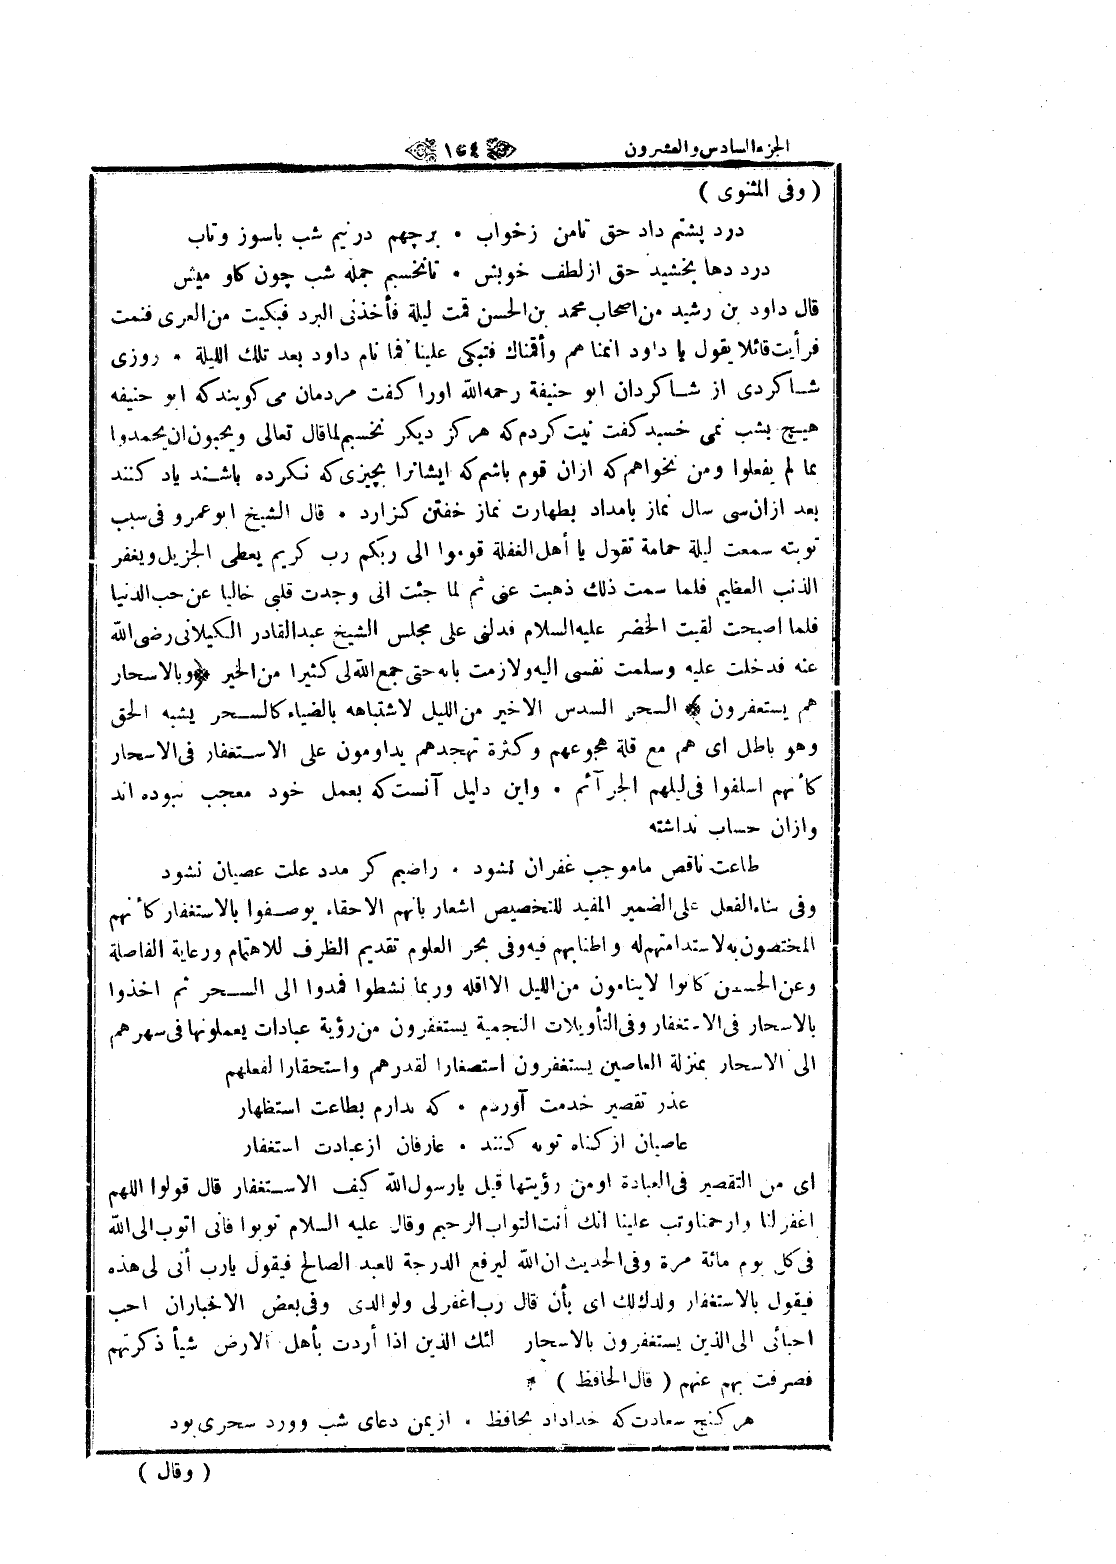 الجزء السادس والعشرون
١٥٤
( وفى المثنوى )
درد پشتم داد حق تامن زخواب • برجهم درنيم شب باسوز وتاب
درد دها بخشيد حق ازلطف خويش • تانخسبم جمله شب چون كاو ميش
قال داود بن رشيد من اصحاب محمد بن الحسن قمت ليلة فأخذنى البرد فبكيت من العرى فنمت
فرأيت قائلا يقول يا داود انمناهم وأقمناك فتبكى علينا فما نام داود بعد تلك الليلة • روزى
شاكردى از شاكردان ابو حنيفة رحمه الله اورا كفت مردمان مى كويندكه ابو حنيفه
هيچ بشب نمى خسبد كفت نيت كردم كه هركز ديكر نخسبم لماقال تعالى ويحبون ان يحمدوا
بما لم يفعلوا ومن نخواهم كه ازان قوم باشم كه ايشانرا بچيزى كه نكرده باشند ياد كنند
بعد ازان سى سال نماز بامداد بطهارت نماز خفتن كزارد • قال الشيخ ابوعمرو فى سبب
توبته سمعت ليلة حمامة تقول يا أهل الغفلة قوموا الى ربكم رب كريم يعطى الجزيل ويغفر
الذنب العظيم فلما سمعت ذلك ذهبت عنى ثم لما جئت انى وجدت قلبى خاليا عن حب الدنيا
فلما اصبحت لقيت الخضر عليه السلام فدلنى على مجلس الشيخ عبدالقادر الكيلانى رضى الله
عنه فدخلت عليه وسلمت نفسى اليه ولازمت بابه حتى جمع الله لى كثيرا من الخير ﴿ وبالاسحار
هم يستغفرون ﴾ السحر السدس الاخير من الليل لاشتباهه بالضياء كالسحر يشبه الحق
وهو باطل اى هم مع قلة هجوعهم وكثرة تهجدهم يداومون على الاستغفار فى الاسحار
كأنهم اسلفوا فى ليلهم الجرآئم • واين دليل آنست كه بعمل خود معجب نبوده اند
وازان حساب نداشته
طاعت ناقص ماموجب غفران نشود • راضيم كر مدد علت عصيان نشود
وفى بناء الفعل على الضمير المفيد للتخصيص اشعار بأنهم الاحقاء يوصفوا بالاستغفار كأنهم
المختصون به لاستدامتهم له واطنابهم فيه وفى بحر العلوم تقديم الظرف للاهتمام ورعاية الفاصلة
وعن الحسن كانوا لاينامون من الليل الااقله وربما نشطوا فمدوا الى السحر ثم اخذوا
بالاسحار فى الاستغفار وفى التأويلات النجمية يستغفرون من رؤية عبادات يعملونها فى سهرهم
الى الاسحار بمنزلة العاصين يستغفرون استصغارا لقدرهم واستحقارا لفعلهم
عذر تقصير خدمت آوردم • كه ندارم بطاعت استظهار
عاصيان ازكناه توبه كنند • عارفان ازعبادت استغفار
اى من التقصير فى العبادة اومن رؤيتها قيل يارسول الله كيف الاستغفار قال قولوا اللهم
اغفر لنا وارحمناوتب علينا انك أنت التواب الرحيم وقال عليه السلام توبوا فانى اتوب الى الله
فى كل يوم مائة مرة وفى الحديث ان الله ليرفع الدرجة للعبد الصالح فيقول يارب أنى لى هذه
فيقول بالاستغفار ولدك لك اى بأن قال رب اغفر لى ولوالدى وفى بعض الاخبار ان احب
احبائى الى الذين يستغفرون بالاسحار ائك الذين اذا أردت بأهل الارض شيأ ذكرتهم
فصرفت بهم عنهم ( قال الحافظ )
هر كنج سعادت كه خداداد بحافظ • ازيمن دعاى شب وورد سحرى بود
( وقال )